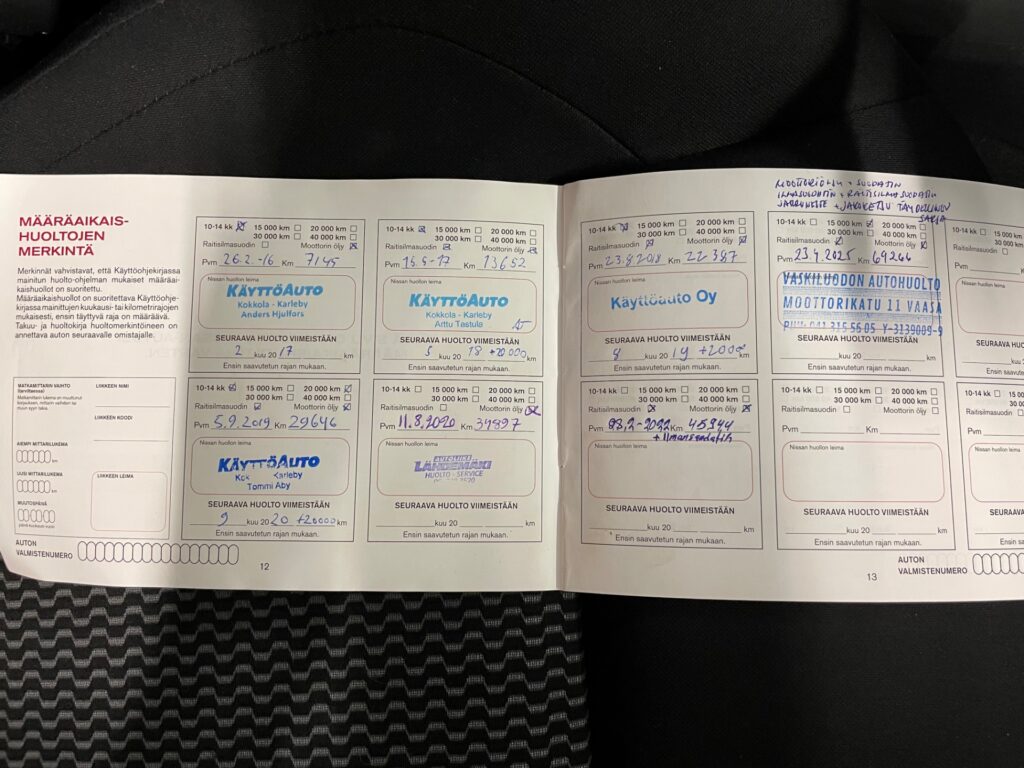 MÄÄRÄAIKAIS-
HUOLTOJEN
MERKINTÄ
Merkinnät vahvistavat, että Käyttöohjekirjassa
mainitun huolto-ohjelman mukaiset määräai-
kaishuollot on suoritettu.
Määräaikaishuollot on suoritettava Käyttöohje-
kirjassa mainittujen kuukausi- tai kilometrirajojen
mukaisesti, ensin täyttyvä raja on määräävä.
Takuu- ja huoltokirja huoltomerkintöineen on
annettava auton seuraavalle omistajalle.
MATKAMITTARIN VAIHTO
(tarvittaessa)
LIIKKEEN NIMI
LIIKKEEN KOODI
AIEMPI MITTARILUKEMA
km
UUSI MITTARILUKEMA
km
LIIKKEEN LEIMA
MUUTOSPÄIVÄ
AUTON
VALMISTENUMERO
10-14 kk 15 000 km 20 000 km
30 000 km 40 000 km
Raitisilmasuodin Moottorin öljy
Pvm 26.2.-16 Km 7145
Nissan huollon leima
KÄYTTÖAUTO
Kokkola - Karleby
Anders Hjulfors
SEURAAVA HUOLTO VIIMEISTÄÄN
2 kuu 20 17 km
Ensin saavutetun rajan mukaan.
10-14 kk 15 000 km 20 000 km
30 000 km 40 000 km
Raitisilmasuodin Moottorin öljy
Pvm 15.5-17 Km 13652
Nissan huollon leima
KÄYTTÖAUTO
Kokkola - Karleby
Arttu Tastula
SEURAAVA HUOLTO VIIMEISTÄÄN
5 kuu 20 18 +20 000 km
Ensin saavutetun rajan mukaan.
10-14 kk 15 000 km 20 000 km
30 000 km 40 000 km
Raitisilmasuodin Moottorin öljy
Pvm 5.9.2019 Km 29646
Nissan huollon leima
KÄYTTÖAUTO
Kok Karleby
Tommi Aby
SEURAAVA HUOLTO VIIMEISTÄÄN
9 kuu 20 20 +20000 km
Ensin saavutetun rajan mukaan.
10-14 kk 15 000 km 20 000 km
30 000 km 40 000 km
Raitisilmasuodin Moottorin öljy
Pvm 11.8.2020 Km 37897
Nissan huollon leima
AUTOLIIKE
LÄHDEMÄKI
HUOLTO - SERVICE
SEURAAVA HUOLTO VIIMEISTÄÄN
kuu 20 km
Ensin saavutetun rajan mukaan.
12
10-14 kk 15 000 km 20 000 km
30 000 km 40 000 km
Raitisilmasuodin Moottorin öljy
Pvm 23.8.2018 Km 22387
Nissan huollon leima
Käyttöauto Oy
SEURAAVA HUOLTO VIIMEISTÄÄN
8 kuu 20 19 +2000 km
Ensin saavutetun rajan mukaan.
MOOTTORIÖLJY + SUODATIN
ILMASUODATIN + RAITISILMASUODATIN
JARRUNESTE + JAKOKETJU TÄYDELLINEN
SARJA
10-14 kk 15 000 km 20 000 km
30 000 km 40 000 km
Raitisilmasuodin Moottorin öljy
Pvm 23.4.2025 Km 64266
Nissan huollon leima
VASKILUODON AUTOHUOLTO
MOOTTORIKATU 11 VAASA
PUH: 041 315 56 05 Y-3139009-9
SEURAAVA HUOLTO VIIMEISTÄÄN
kuu 20 km
Ensin saavutetun rajan mukaan.
10-14 kk 15 000 km 20 000 km
30 000 km 40 000 km
Raitisilmasuodin Moottorin öljy
Pvm 03.2-2022 Km 45944
Nissan huollon leima
SEURAAVA HUOLTO VIIMEISTÄÄN
kuu 20 km
Ensin saavutetun rajan mukaan.
10-14 kk 15 000 km 20 000 km
30 000 km 40 000 km
Raitisilmasuodin Moottorin öljy
Pvm Km
Nissan huollon leima
SEURAAVA HUOLTO VIIMEISTÄÄN
kuu 20 km
Ensin saavutetun rajan mukaan.
10-14 kk
Raitisilmasuodin
Pvm
Nissan huollon leima
SEURAAVA HU
Ensin saa
10-14 kk
Raitisilmasuod
Pvm
Nissan huollon
SEURAAV
Ensin
AUTON
VALMISTENUMERO
13